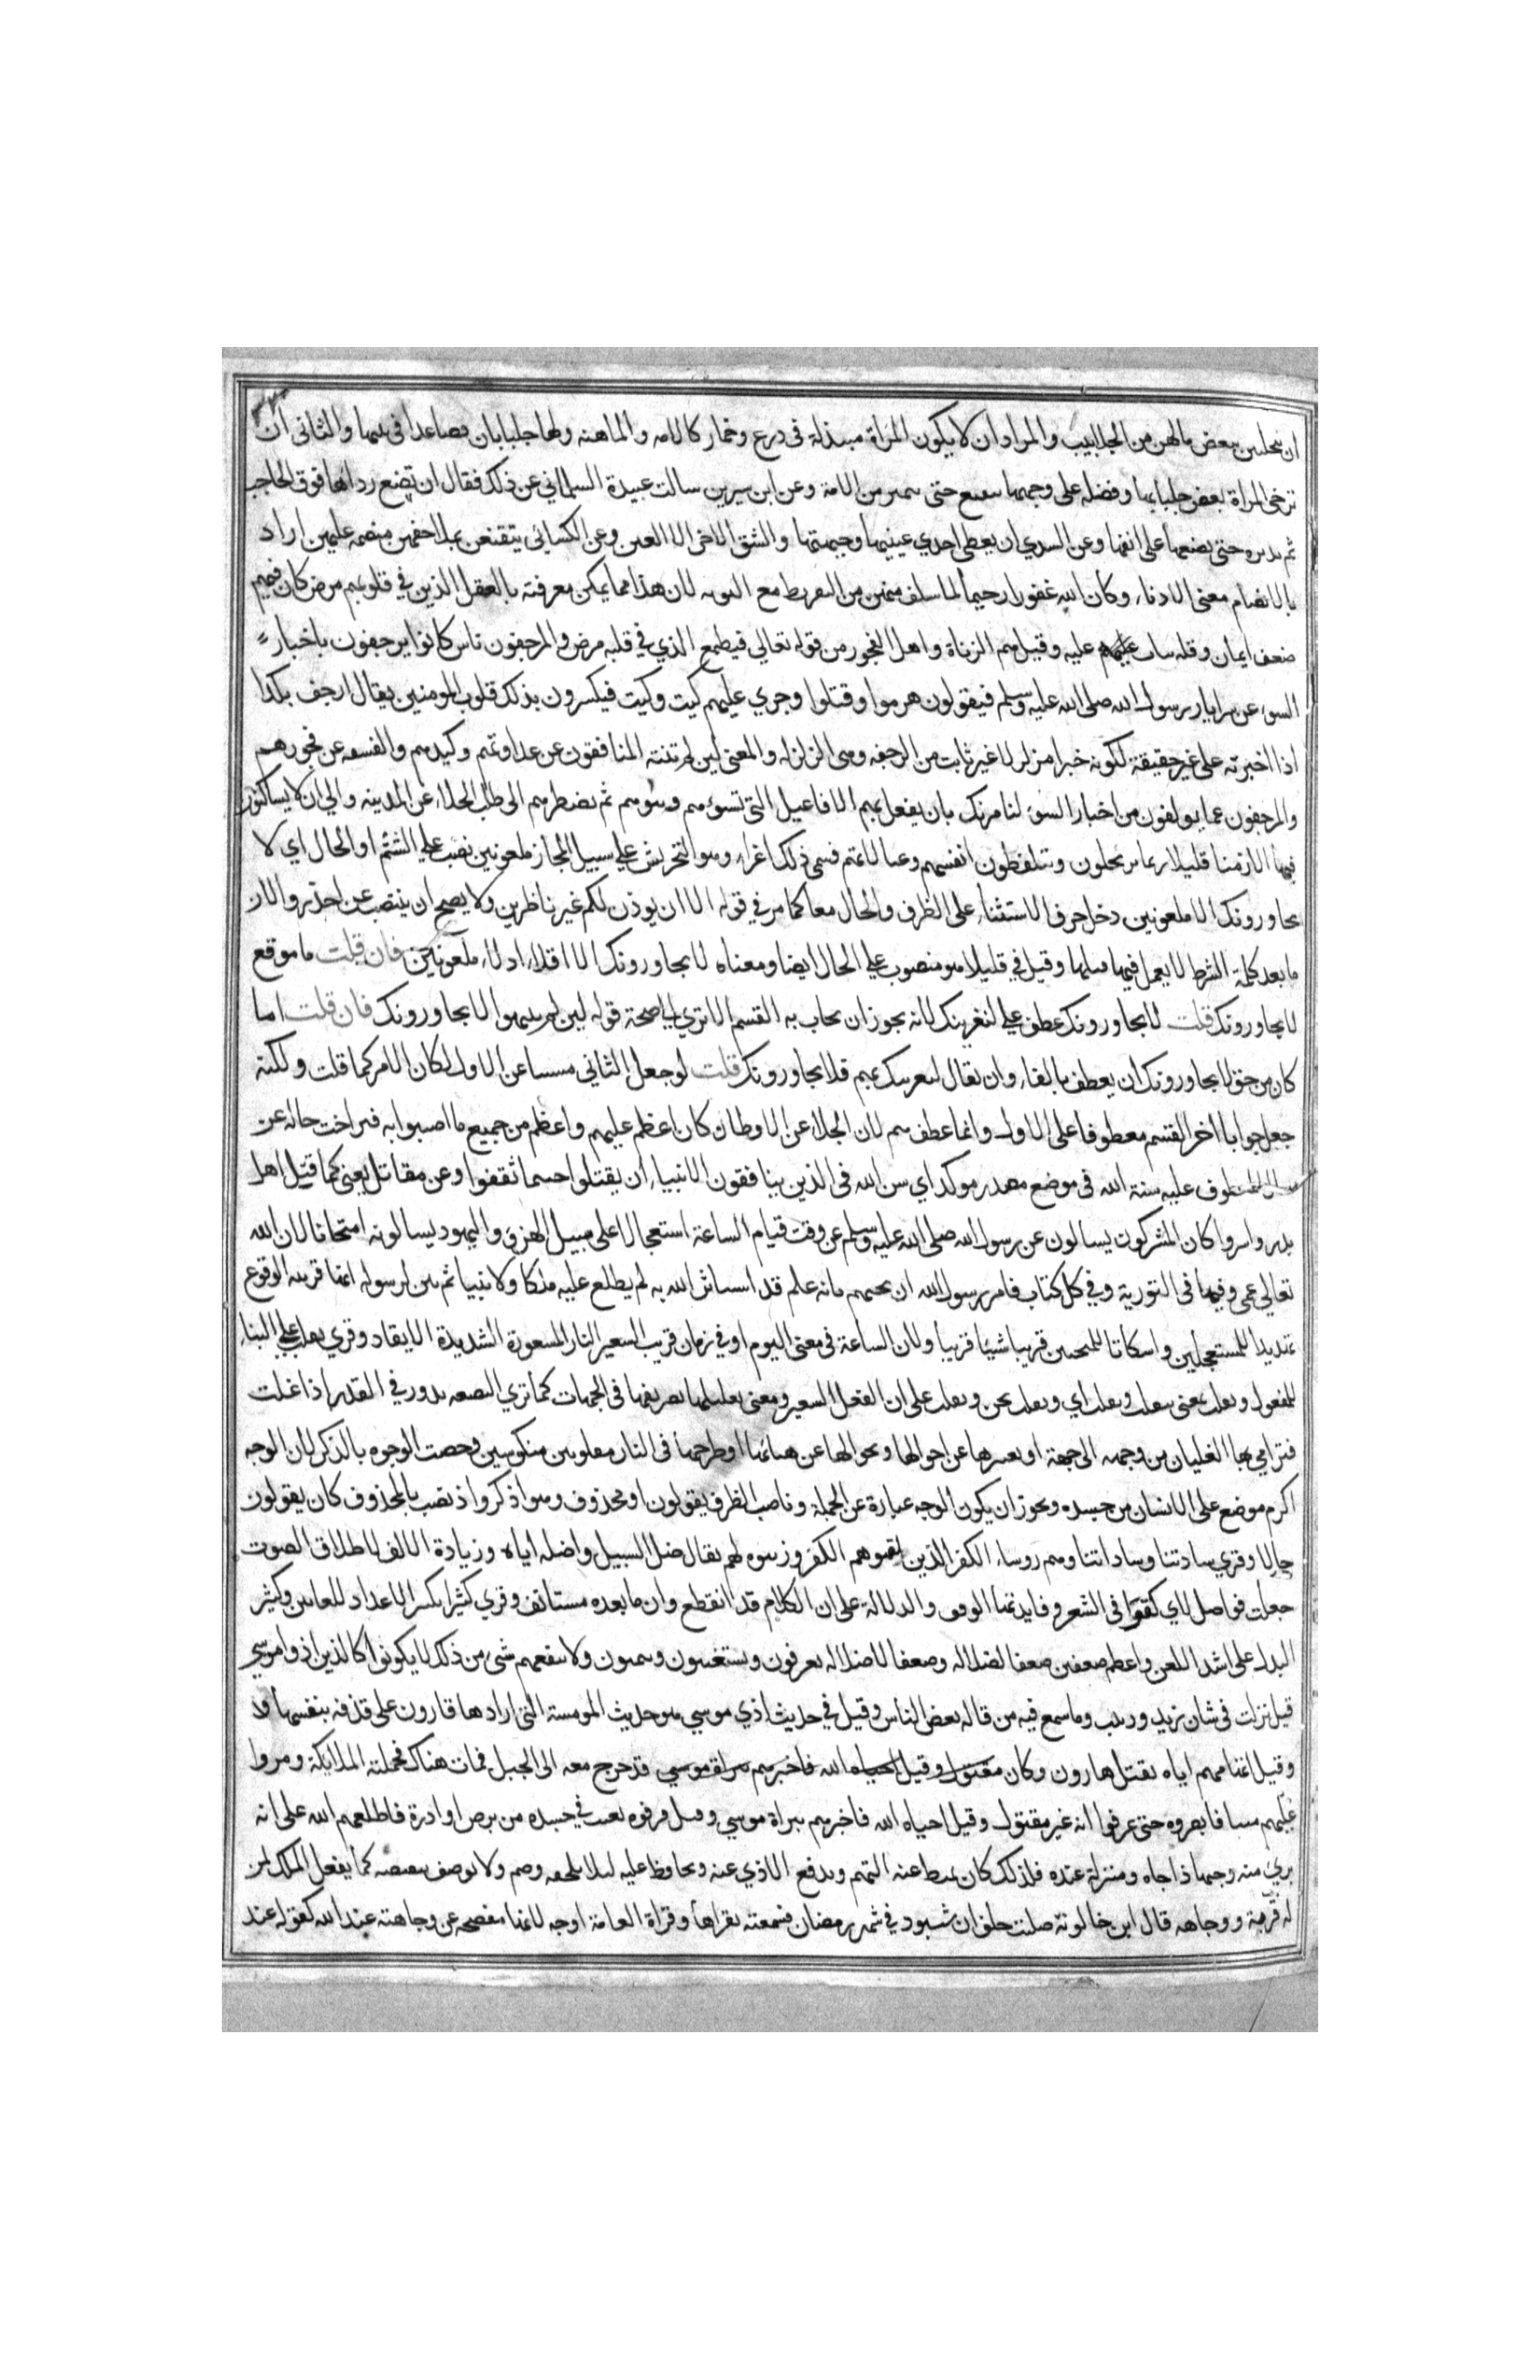 ان يتجلبن ببعض مالهن من الجلابيب والمراد ان لا يكون المراة مبتذلة فى درع وخمار كالامه والماهنه ولها جلبابان فصاعدا فى بيتها والثانى ان
ترخى المراة بعض جلبابها وفضله على وجهها تتقنع حتى تتميز من الامة وعن ابن سيرين سالت عبيدة السلماني عن ذلك فقال ان تضع ردائها فوق الحاجب
ثم تديره حتى تضعها على انفها وعن السدي ان يغطى احدي عينيها وجبهتها والشق الاخر الا العين وعن الكسائى يتقنعن بملاحفهن منضمة عليهن اراد
بالانضام معنى الادناء وكان الله غفورا رحيما لما سلف منهن من التفريط مع التوبه لان هذا مما يمكن معرفته بالعقل الذين في قلوبهم مرض كان فيهم
ضعف ايمان وقله ثبات عليه وقيل هم الزناة واهل الفجور من قوله تعالي فيطمع الذي في قلبه مرض والمرجفون ناس كانوا يرجفون باخبار
السوء عن سرايا رسول الله صلى الله عليه وسلم فيقولون هزموا وقتلوا وجري عليهم كيت وكيت فيكسرون بذلك قلوب المومنين يقال ارجف بكذا
اذا اخبر به على غير حقيقة لكونه خبرا متزلزلا غير ثابت من الرجفه وهى الزلزله والمعنى لين لم تنته المنافقون عن عداوتهم وكيدهم والفسقه عن فجورهم
والمرجفون عما يولفون من اخبار السوء لنامرنك بان يفعل بهم الافاعيل التى تسوءهم وتنوءهم ثم تضطرهم الى طلب الجلاء عن المدينه والي ان لا يساكنوك
فيها الا زمنا قليلا ريثما يرتحلون ويتلفظون انفسهم وعيالاتهم فسمى ذلك اغراء وهو التحريش علي سبيل المجاز ملعونين نصب علي الشتم او الحال اي لا
يجاورونك الا ملعونين دخل حرف الاستثناء على الظرف والحال معا كما مر في قوله الا ان يوذن لكم غير ناظرين ولا يصح ان ينتصب عن اخذوا لان
ما بعد كلمة الشرط لا يعمل فيها قبلها وقيل في قليلا هو منصوب علي الحال ايضا ومعناه لا يجاورونك الا اقلاء اذلاء ملعونين فان قلت ما موقع
لا يجاورونك قلت لا يجاورونك عطف علي لنغرينك لانه يجوز ان يجاب به القسم الا تري الي صحة قوله لين لم ينتهوا لا يجاورونك فان قلت اما
كان من حق لا يجاورونك ان يعطف بالفاء وان يقال لنغرينك بهم فلا يجاورونك قلت لو جعل الثاني مسببا عن الاول لكان الامر كما قلت ولكنه
جعل جوابا اخر القسم معطوفا على الاول وانما عطف بثم لان الجلاء عن الاوطان كان اعظم عليهم واعظم من جميع ما اصيبوا به فتراخت حاله عن
المعطوف عليه سنة الله فى موضع مصدر موكد اي سن الله فى الذين ينافقون الانبياء ان يقتلوا حيثما ثقفوا وعن مقاتل يعنى كما قتل اهل
بدر واسروا كان المشركون يسالون عن رسول الله صلى الله عليه وسلم عن وقت قيام الساعة استعجالا على سبيل الهزو واليهود يسالونه امتحانا لان الله
تعالي عمى وقتها فى التورية وفي كل كتاب فامر رسول الله ان يجيبهم بانه علم قد استاثر الله به لم يطلع عليه ملكا ولا نبيا ثم بين لرسوله انها قريبه الوقوع
تهديدا للمستعجلين واسكاتا للممتحنين قريبا شيئا قريبا ولان الساعة فى معنى اليوم او في زمان قريب السعير النار المسعورة الشديدة الايقاد وقري تقلب علي البناء
للمفعول وتقلب بمعنى تتقلب وتقلب اي وتقلب نحن وتقلب على ان الفعل السعير ومعنى تقليبها تصريفها فى الجهات كما تري البضعه تدور في القدر اذا غلت
فترامي بها الغليان من وجهه الى جهة او تغيرها عن احوالها وتحولها عن هيئاتها او طرحها فى النار مقلوبين منكوسين وخصت الوجوه بالذكر لان الوجه
اكرم موضع على الانسان من جسده ويجوز ان يكون الوجه عبارة عن الجملة وناصب الظرف يقولون او محذوف وهو اذكروا اذ نصب بالمحذوف كان يقولون
حالا وقري سادتنا وساداتنا وهم روساء الكفر الذين لقنوهم الكفر وزينوه لهم يقال ضل السبيل واضله اياه وزيادة الالف لاطلاق الصوت
جعلت فواصل الاي كقوا فى الشعر وفايدتها الوقف والدلالة على ان الكلام قد انقطع وان ما بعده مستانف وقري كثيرا بكسر الاعداد للعاين وكثير
البدل على اشد اللعن واعظم ضعفين ضعفا لضلاله وضعفا لاضلاله يعرفون ويستغيثون ويتمنون ولا ينفعهم شى من ذلك لا يكونوا كالذين اذوا موسي
قيل نزلت فى شان زيد وزينب وما سمع فيه من قاله بعض الناس وقيل في حديث اذي موسي هو حديث المومسة التى ارادها قارون على قذفه بنفسها
وقيل اتهامهم اياه بقتل هارون وكان قد خرج معه الى الجبل فمات هناك فحملته الملائكة ومروا
عليهم ميتا فابصروه حتى عرفوا انه غير مقتول وقيل احياه الله فاخبرهم ببراة موسي وقيل قرفوه بعيب في جسده من برص او ادرة فاطلعهم الله على انه
بري منه وجيها ذا جاه ومنزلة عنده فلذلك كان يميط عنه التهم ويدفع الاذي عنه ويحافظ عليه ليلا يلحقه وصم ولا يوصف بنقيصه كما يفعل الملك لمن
له قربة ووجاهه قال ابن خالونة صلت خلف ان شنبود في شهر رمضان فسمعته يقراها وقراة العامة اوجه لانها مفصحه عن وجاهته عند الله كقوله عند